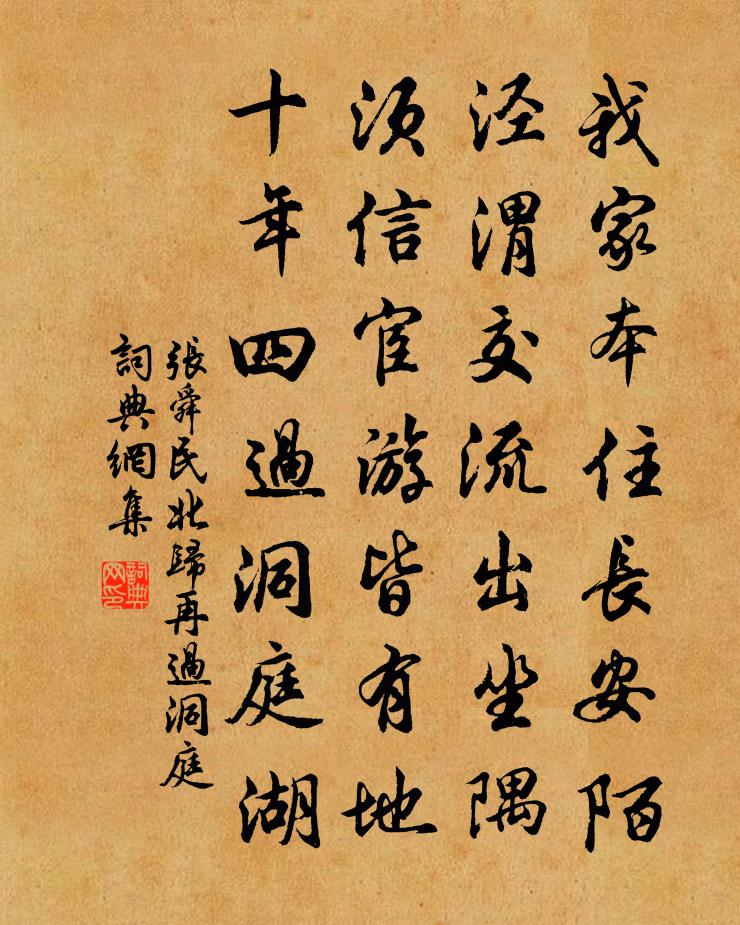 我家本住長安陌
泾渭交流出坐隅
須信宦游皆有地
十年四過洞庭湖
張舜民北歸再過洞庭
詞典網集
詞典网印